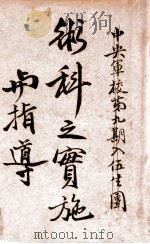 中央軍校第九期入伍生團
術科之實施
與指導